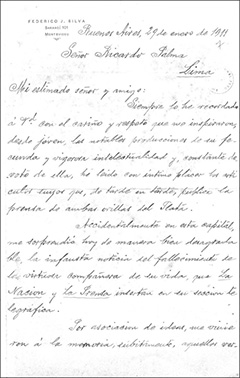 FEDERICO J. SILVA
SARANDÍ
MONTEVIDEO
Buenos Aires, 29 de enero de 1911
Señor Ricardo Palma
Lima
Mi estimado señor y amigo:
Siempre lo he recordado
á Vd. con el cariño y respeto que me inspiraron,
desde joven, las notables producciones de su fe-
cunda y vigorosa intelectualidad y, constante de-
voto de ella, he leído con íntimo placer los ar-
tículos suyos que, de tarde en tarde, publica la
prensa de ambas orillas del Plata.
Accidentalmente en esta capital,
me sorprendió hoy de manera bien desagrada-
ble, la infausta noticia del fallecimiento de
la virtuosa compañera de su vida, que La
Nacion y La Prensa insertan en su seccion te-
legráfica.
Por asociacion de ideas, me vinie-
ron á la memoria, subitamente, aquellos ver-